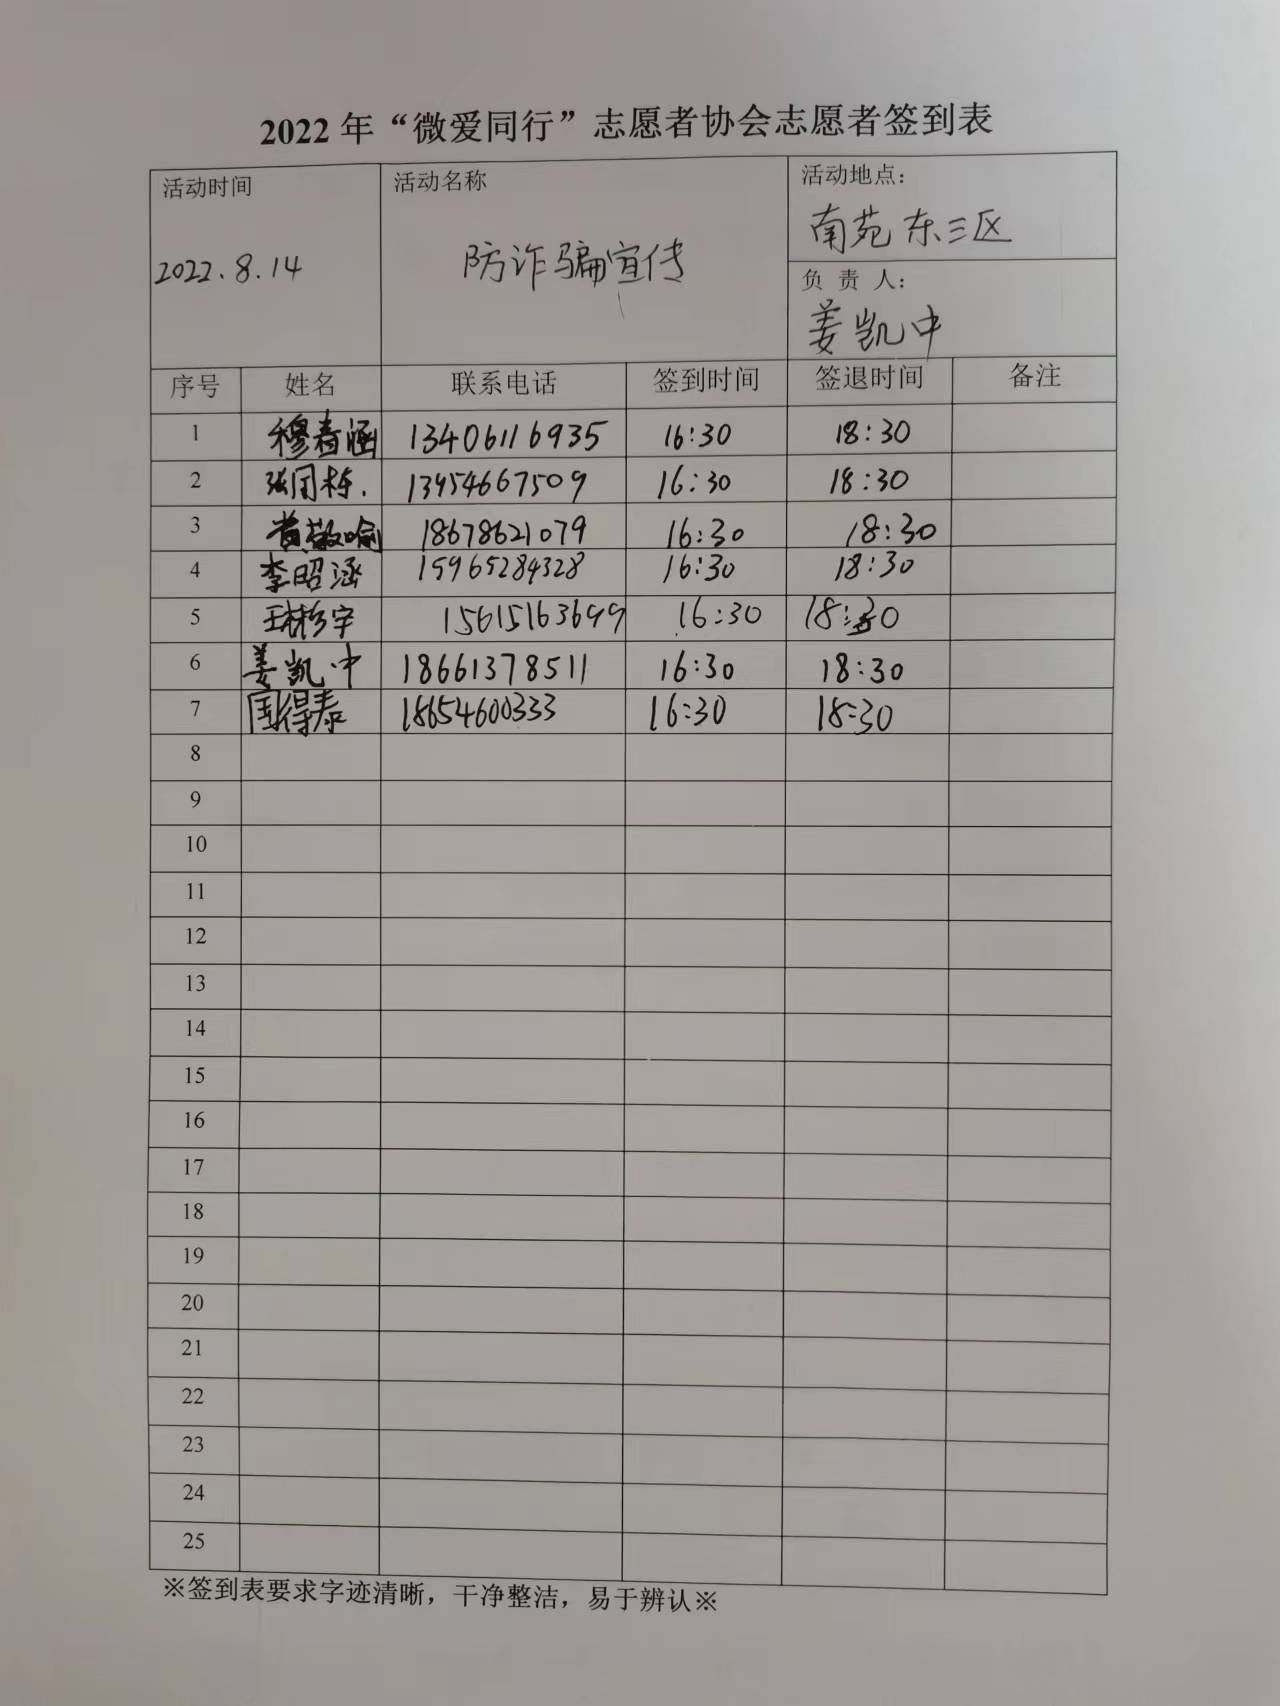 2022 年“微爱同行”志愿者协会志愿者签到表
活动时间 活动名称 活动地点：
南苑东三区
2022.8.14 防诈骗宣传
负 责 人：
姜凯中
序号 姓名 联系电话 签到时间 签退时间 备注
1 穆春涵 13406116935 16:30 18:30
2 张国栋. 13954667509 16:30 18:30
3 黄敬喻 18678621079 16:30 18:30
4 李昭涵 15965284328 16:30 18:30
5 宇 15615163699 16:30 18:30
6 姜凯中 18661378511 16:30 18:30
7 国得泰 18654600333 16:30 18:30
8
9
10
11
12
13
14
15
16
17
18
19
20
21
22
23
24
25
※签到表要求字迹清晰，干净整洁，易于辨认※